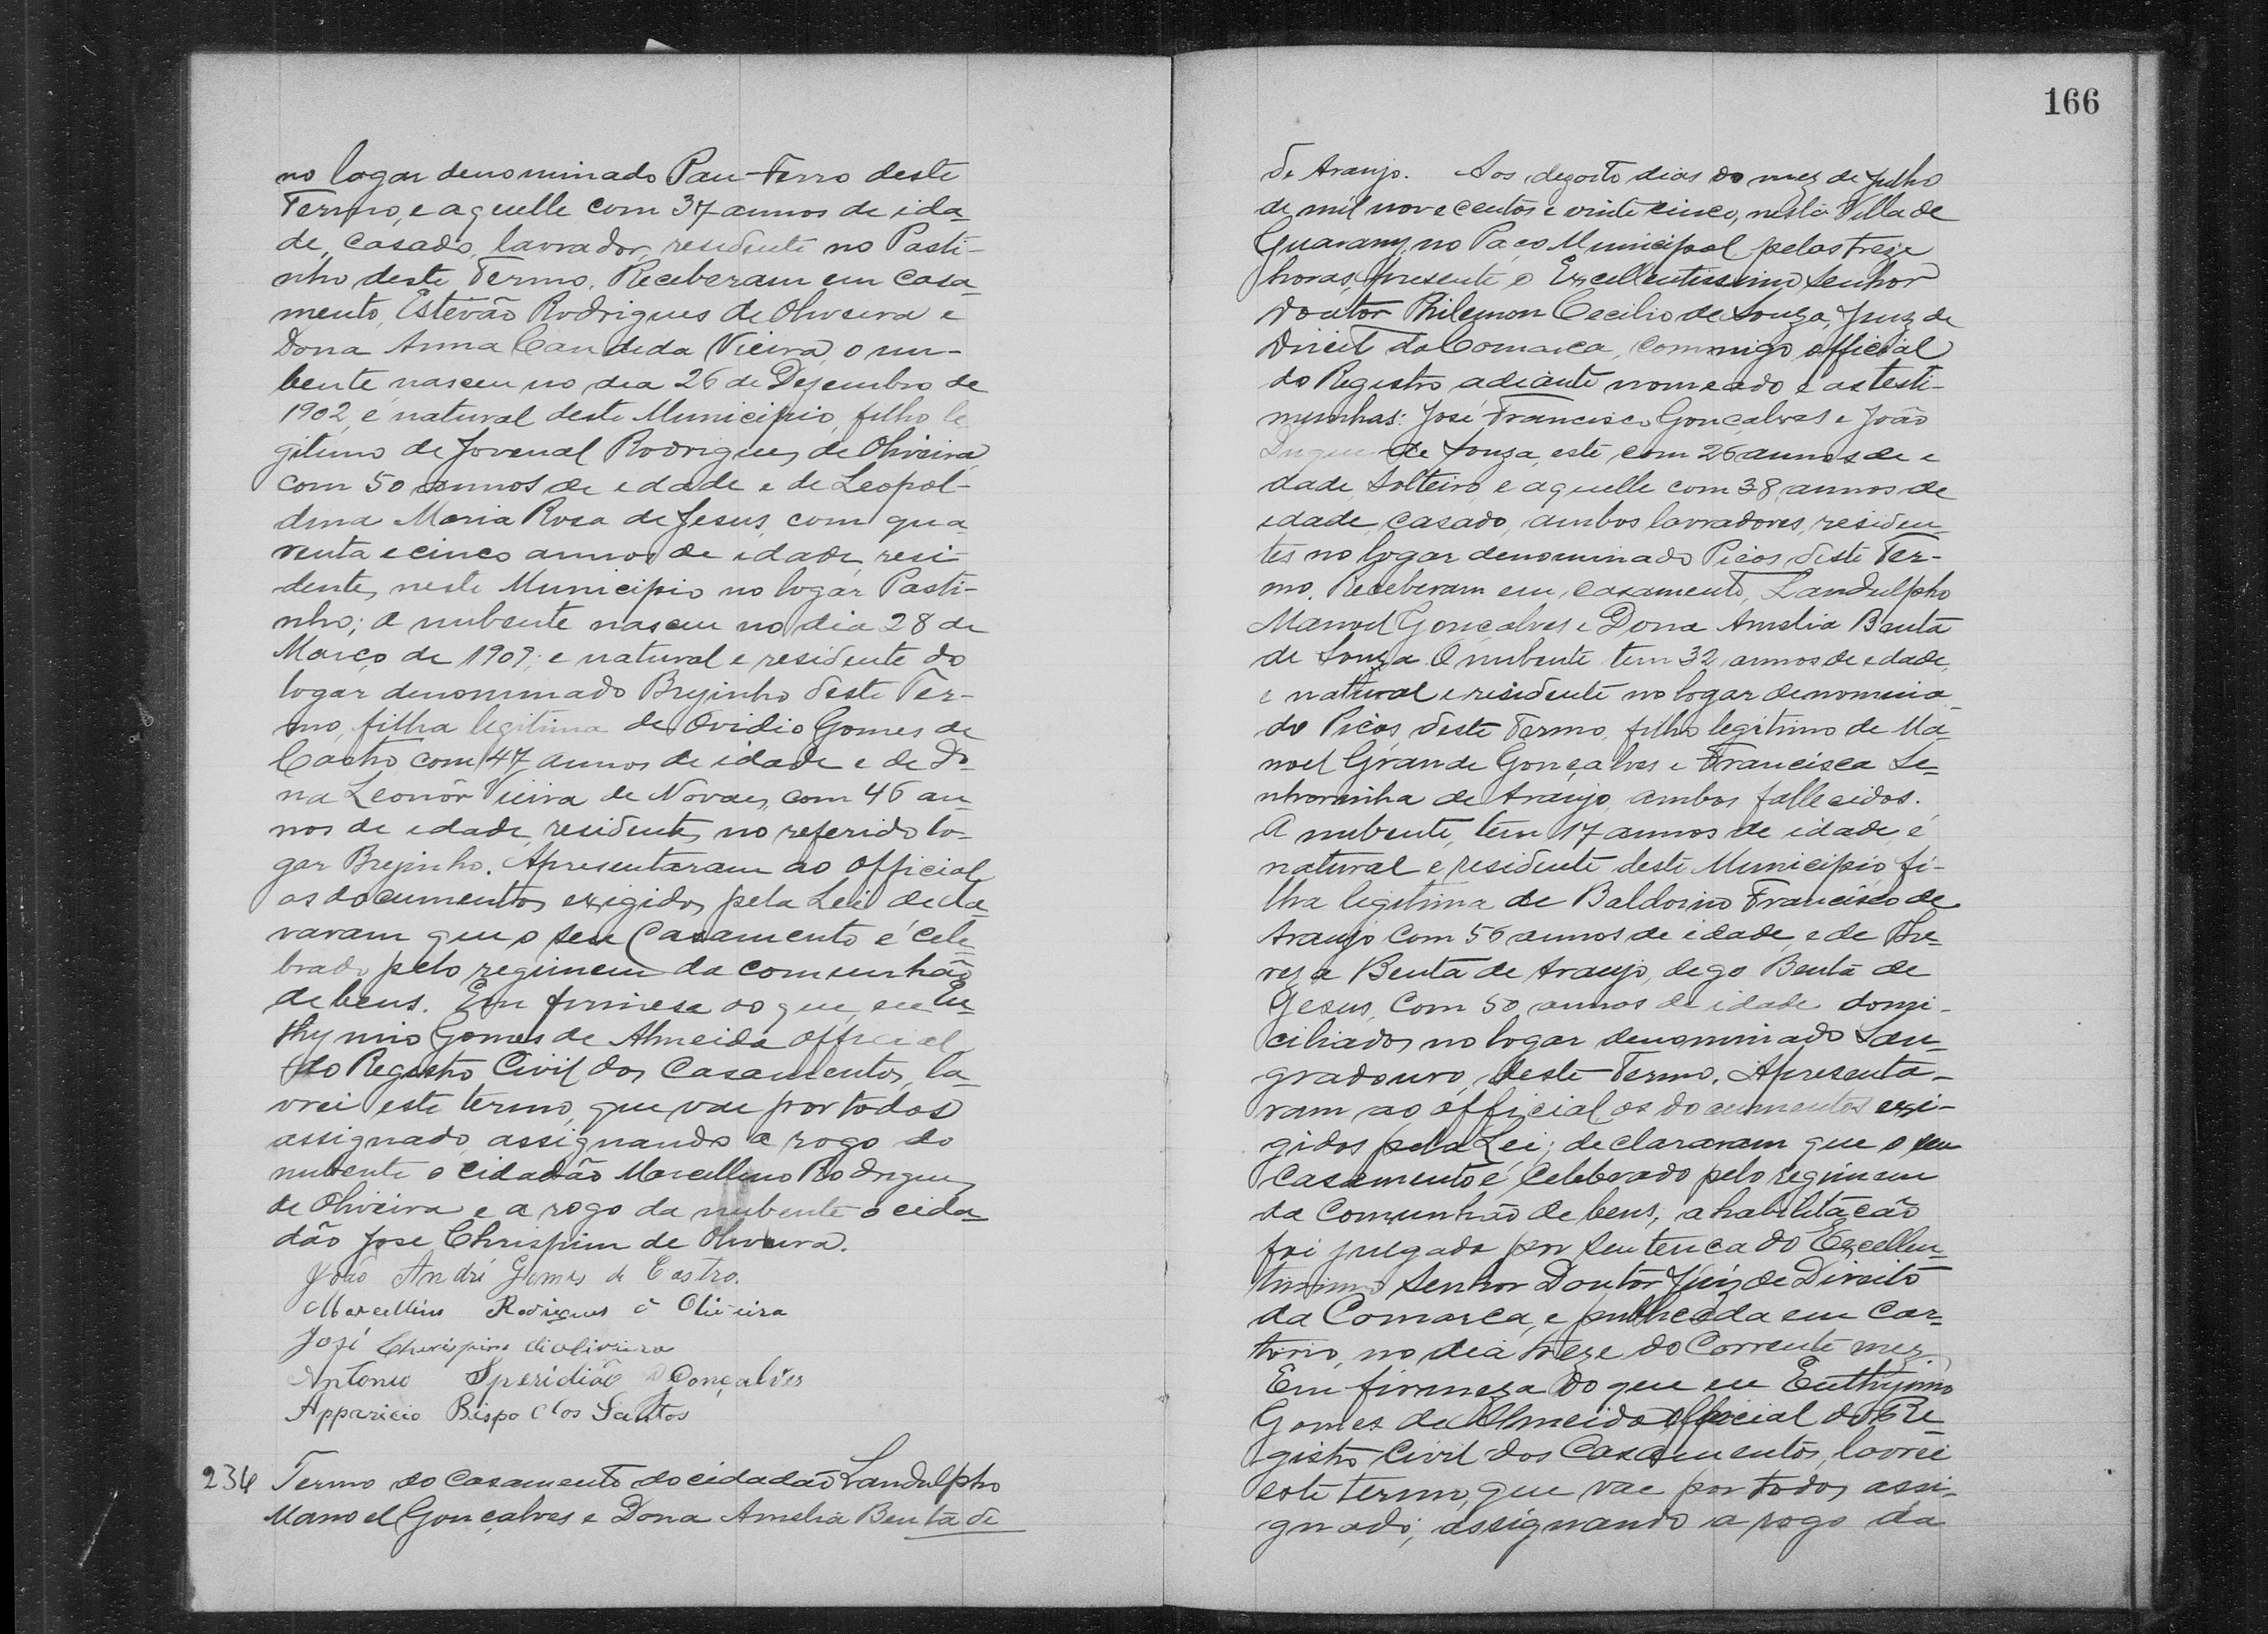 no logar denominado Pau-Ferro deste
Termo, e aquelle com 37 annos de ida-
de, casado, lavrador, residente no Pasti-
nho deste Termo. Receberam em casa-
mento, Estevão Rodrigues de Oliveira e
Dona Anna Candida Vieira, o nu-
bente nasceu no dia 26 de Dezembro de
1902, é natural deste Municipio, filho le
gitimo de Jovenal Rodrigues de Oliveira,
com 50 annos de edade e de Leopol-
dina Maria Rosa de Jesus, com qua-
renta e cinco annos de idade, resi-
dentes neste Municipio no logar Pasti-
nho; a nubente nasceu no dia 28 de
Março de 1907; e natural e residente do
logar denominado Brejinho deste Ter-
mo, filha legitima de Ovidio Gomes de
Castro, com 47 annos de idade e de Do-
na Leonôr Vieira de Novaes, com 46 an-
nos de edade, residentes no referido lo-
gar Brejinho. Apresentaram ao official
os documentos exigidos pela Lei decla-
raram que o seu Casamento é cele-
brado pelo regimem da comunhão
de bens. Em firmesa do que, eu Eu-
thymio Gomes de Almeida official
do Registro Civil dos Casamentos, la-
vrei este termo, que vae por todos
assignado, assignando a rogo do
nubente o cidadão Marcellino Rodrigues
de Oliveira e a rogo da nubente o cida-
dão José Chrispim de Oliveira.
João André Gomes de Castro.
Marcellino Rodrigues d Oliveira
José Chrispim di oliveira
Antonio Speridião D Gonçalves
Apparicio Bispo dos Santos
234 Termo do Casamento do cidadão Landulpho
Manoel Gonçalves e Dona Amelia Benta de
166
de Araujo. Aos dezoito dias do mez de Julho
de mil novecentos e vinte cinco, nesta Villa de
Guarany, no Paço Municipal pelas treze
horas, presente o Excellentissimo Senhor
Doutor Philemon Cecilio de Souza, Juiz de
Direito da Comarca, commigo official
do Registro adiante nomeado e as teste-
munhas: José Francisco Gonçalves e João
Duque de Souza, este com 26 annos de e
dade, Solteiro, e aquelle com 38 annos de
edade, casado, ambos lavradores, residen
tes no logar denominado Picos deste Ter-
mo. Receberam em casamento, Landulpho
Manoel Gonçalves e Dona Amelia Benta
de Souza. O nubente tem 32 annos de edade,
é natural e residente no logar denomina-
do Picos, deste Termo, filho legitimo de Ma-
noel Grande Gonçalves e Francisca Se-
nhorinha de Araujo, ambos fallecidos.
A nubente, tem 17 annos de idade, é
natural e residente deste Municipio, fi-
lha legitima de Baldoino Francisco de
Araujo com 56 annos de idade, e de The-
reza Benta de Araujo, digo Benta de
Jesus, com 50 annos de idade domi-
ciliados no logar denominado San-
gradouro, deste Termo. Apresenta-
ram ao official os documentos exi-
gidos pela Lei; declararam que o seu
Casamento é celebrado pelo regimem
da Comunhão de bens; a habilitação
foi julgada por sentença do Excellen-
tissimo Senhor Doutor Juiz de Direito
da Comarca, e publicada em Car-
torio, no dia treze do Corrente mez.
Em firmeza do que eu Euthymio
Gomes de Almeida official do Re-
gistro Civil dos Casamentos, lavrei
este termo, que vae por todos assi-
gnado; assignando a rogo da